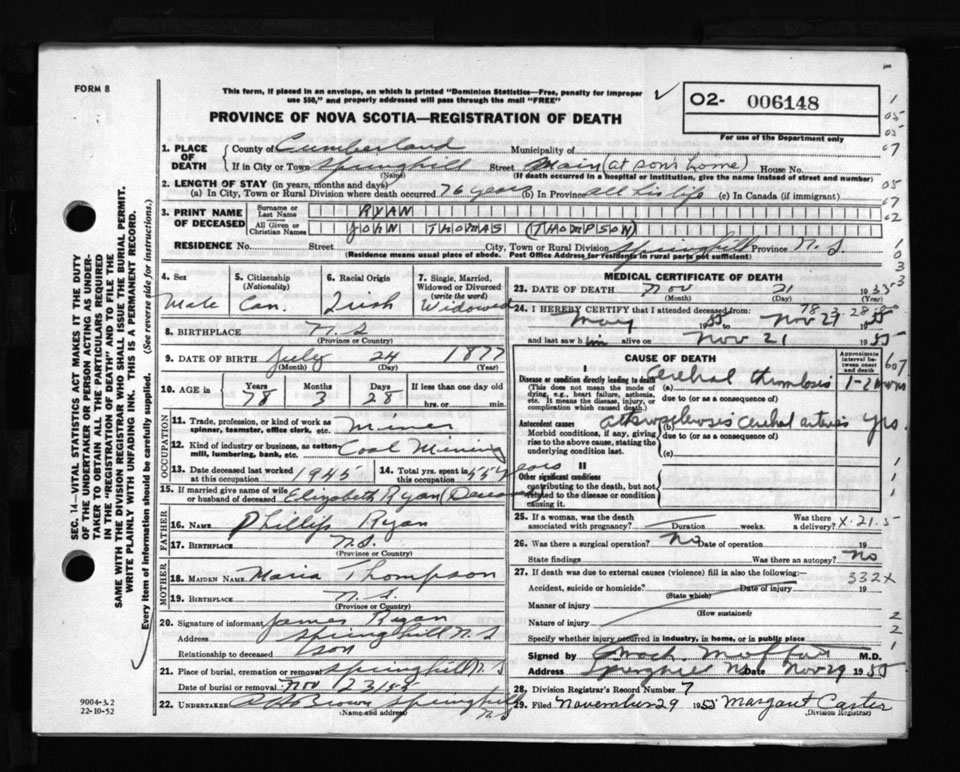 FORM 8
This form, if placed in an envelope, on which is printed "Dominion Statistics—Free, penalty for improper
use $50," and properly addressed will pass through the mail "FREE"
PROVINCE OF NOVA SCOTIA—REGISTRATION OF DEATH
O2- 006148
For use of the Department only
1. PLACE OF DEATH
County of Cumberland Municipality of
If in City or Town Springhill Street Main (at son's home) House No.
(Name) (If death occurred in a hospital or institution, give the name instead of street and number)
2. LENGTH OF STAY (in years, months and days)
(a) In City, Town or Rural Division where death occurred 76 years (b) In Province all his life (c) In Canada (if immigrant)
3. PRINT NAME OF DECEASED
Surname or Last Name RYAN
All Given or Christian Names JOHN THOMAS (THOMPSON)
RESIDENCE No. Street City, Town or Rural Division Springhill Province N.S.
(Residence means usual place of abode. Post Office Address for residents in rural parts not sufficient)
4. Sex Male
5. Citizenship (Nationality) Can.
6. Racial Origin Irish
7. Single, Married, Widowed or Divorced (write the word) Widowed
8. BIRTHPLACE N.S
(Province or Country)
9. DATE OF BIRTH July 24 1877
(Month) (Day) (Year)
10. AGE in Years 78 Months 3 Days 28 If less than one day old
hrs. or min.
OCCUPATION
11. Trade, profession, or kind of work as spinner, teamster, office clerk, etc. Miner
12. Kind of industry or business, as cotton mill, lumbering, bank, etc. Coal Mining
13. Date deceased last worked at this occupation 1945
14. Total yrs. spent in this occupation 55 years
15. If married give name of wife or husband of deceased Elizabeth Ryan (Deceased)
FATHER
16. NAME Phillip Ryan
17. BIRTHPLACE N.S.
(Province or Country)
MOTHER
18. MAIDEN NAME Maria Thompson
19. BIRTHPLACE N.S.
(Province or Country)
20. Signature of informant James Ryan
Address Springhill N.S
Relationship to deceased Son
21. Place of burial, cremation or removal Springhill N.S
Date of burial or removal Nov 23/55
22. UNDERTAKER Brown Springhill
N.S
(Name and address)
MEDICAL CERTIFICATE OF DEATH
23. DATE OF DEATH Nov 21 1955
(Month) (Day) (Year)
24. I HEREBY CERTIFY that I attended deceased from:
May 1955 to Nov 29 1955
and last saw him alive on Nov 21 1955
CAUSE OF DEATH
Approximate interval between onset and death
I
Disease or condition directly leading to death (a) Cerebral thrombosis 1-2
(This does not mean the mode of dying, e.g., heart failure, asthenia, etc. It means the disease, injury, or complication which caused death.)
due to (or as a consequence of)
Antecedent causes (b) cerebral arteries yrs.
Morbid conditions, if any, giving rise to the above cause, stating the underlying condition last.
due to (or as a consequence of)
(c)
II
Other significant conditions
contributing to the death, but not related to the disease or condition causing it.
25. If a woman, was the death associated with pregnancy? Duration weeks. Was there a delivery?
X-21.5
26. Was there a surgical operation? No Date of operation 19
State findings Was there an autopsy? No
27. If death was due to external causes (violence) fill in also the following:
332X
Accident, suicide or homicide? Date of injury 19
(State which)
Manner of injury
(How sustained)
Nature of injury
Specify whether injury occurred in industry, in home, or in public place
Signed by Moffatt M.D.
Address Springhill NS Date Nov 29 1955
28. Division Registrar's Record Number 7
29. Filed November 29 1955 Margaret Carter
(Division Registrar)
SEC. 14—VITAL STATISTICS ACT MAKES IT THE DUTY
OF THE UNDERTAKER OR PERSON ACTING AS UNDER-
TAKER TO OBTAIN ALL THE PARTICULARS REQUIRED
IN THE "REGISTRATION OF DEATH" AND TO FILE THE
SAME WITH THE DIVISION REGISTRAR WHO SHALL ISSUE THE BURIAL PERMIT.
WRITE PLAINLY WITH UNFADING INK. THIS IS A PERMANENT RECORD.
Every item of information should be carefully supplied. (See reverse side for instructions.)
9004-3.2
22-10-52